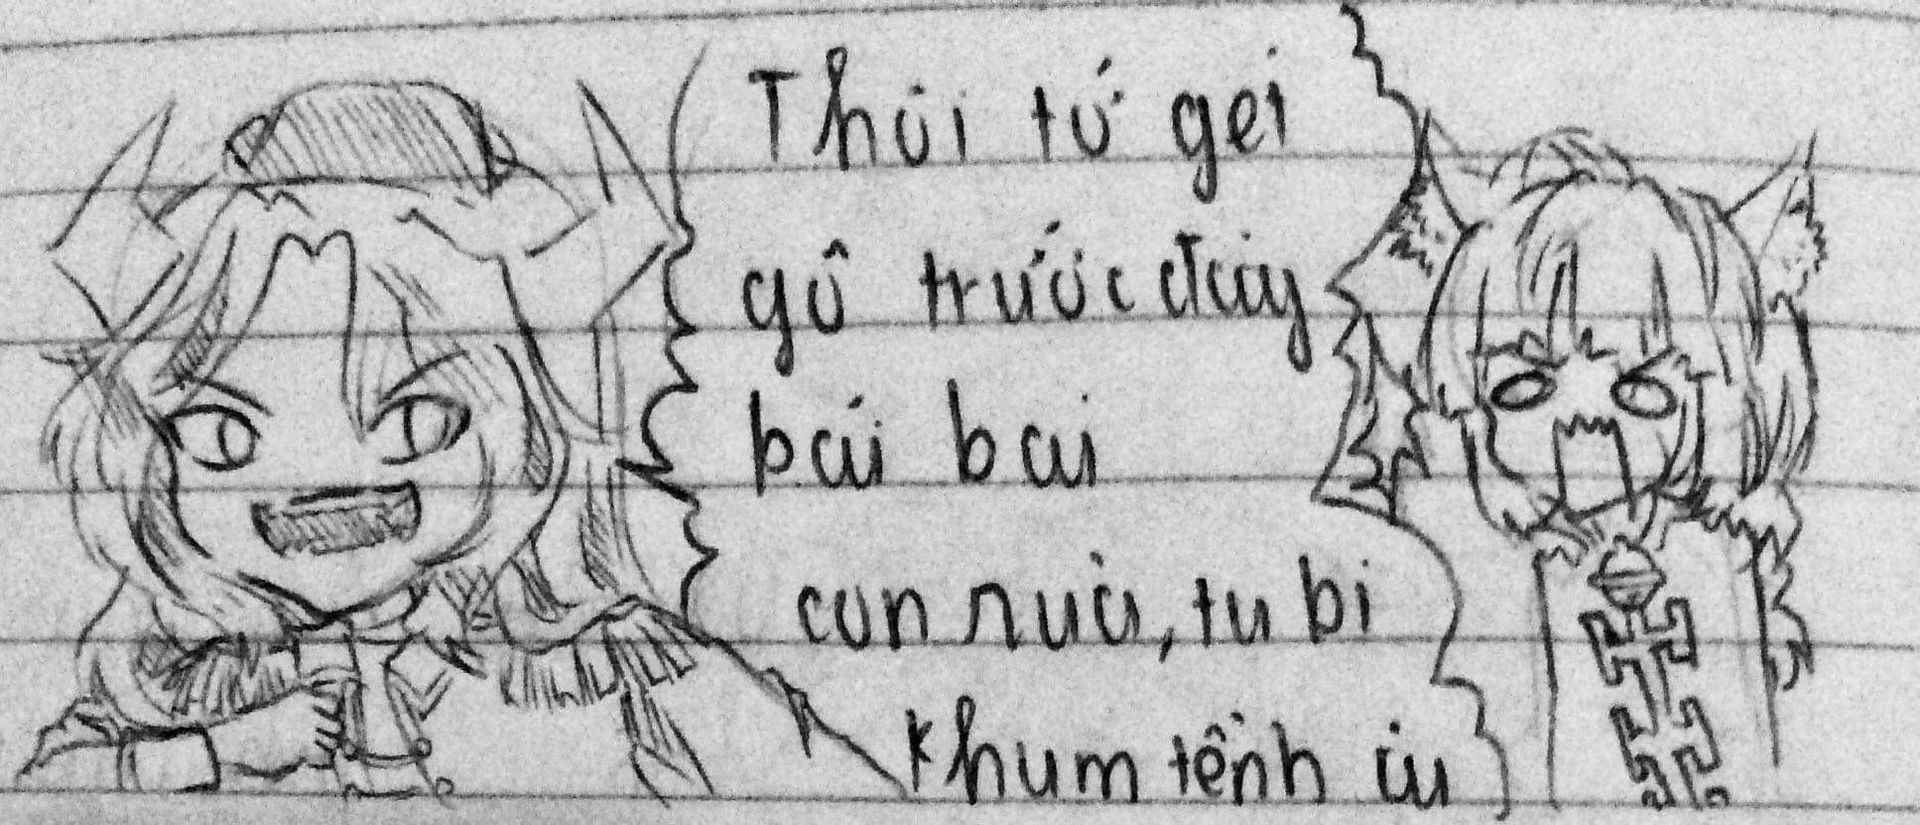 Thúi tứ gei
gô trước đay
bái bai
con nuà, tu bi
Khum tểnh iu